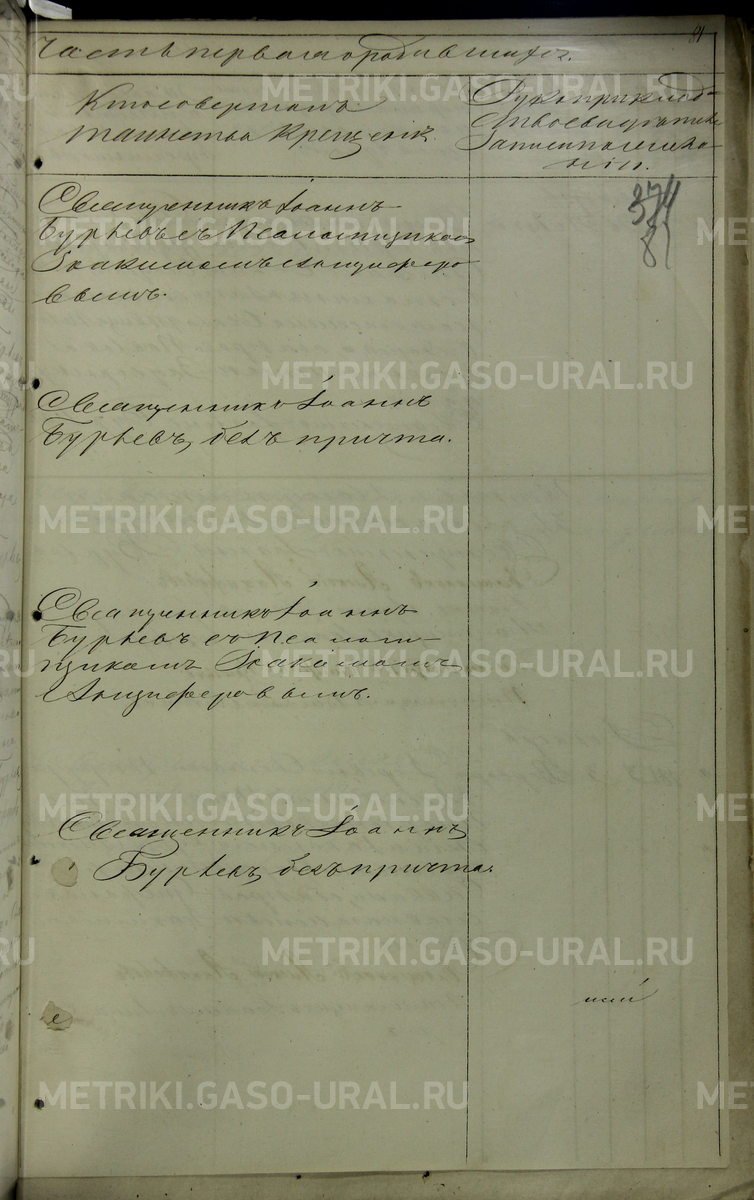 81
Часть первая о родившихся.
Кто совершалъ
таинство Крещенія
Рукоприклад-
ство свидѣтелей
записи по жела-
нію.
374
81
Священникъ Іоаннъ
Бурьевъ съ Псаломщикомъ
Іоакимомъ Анциферо
вымъ.
Священникъ Іоаннъ
Бурьевъ, безъ причта.
Священникъ Іоаннъ
Бурьевъ съ Псалом-
щикомъ Іоакимомъ
Анциферовымъ.
Священникъ Іоаннъ
Бурьевъ, безъ причта.
METRIKI.GASO-URAL.RU